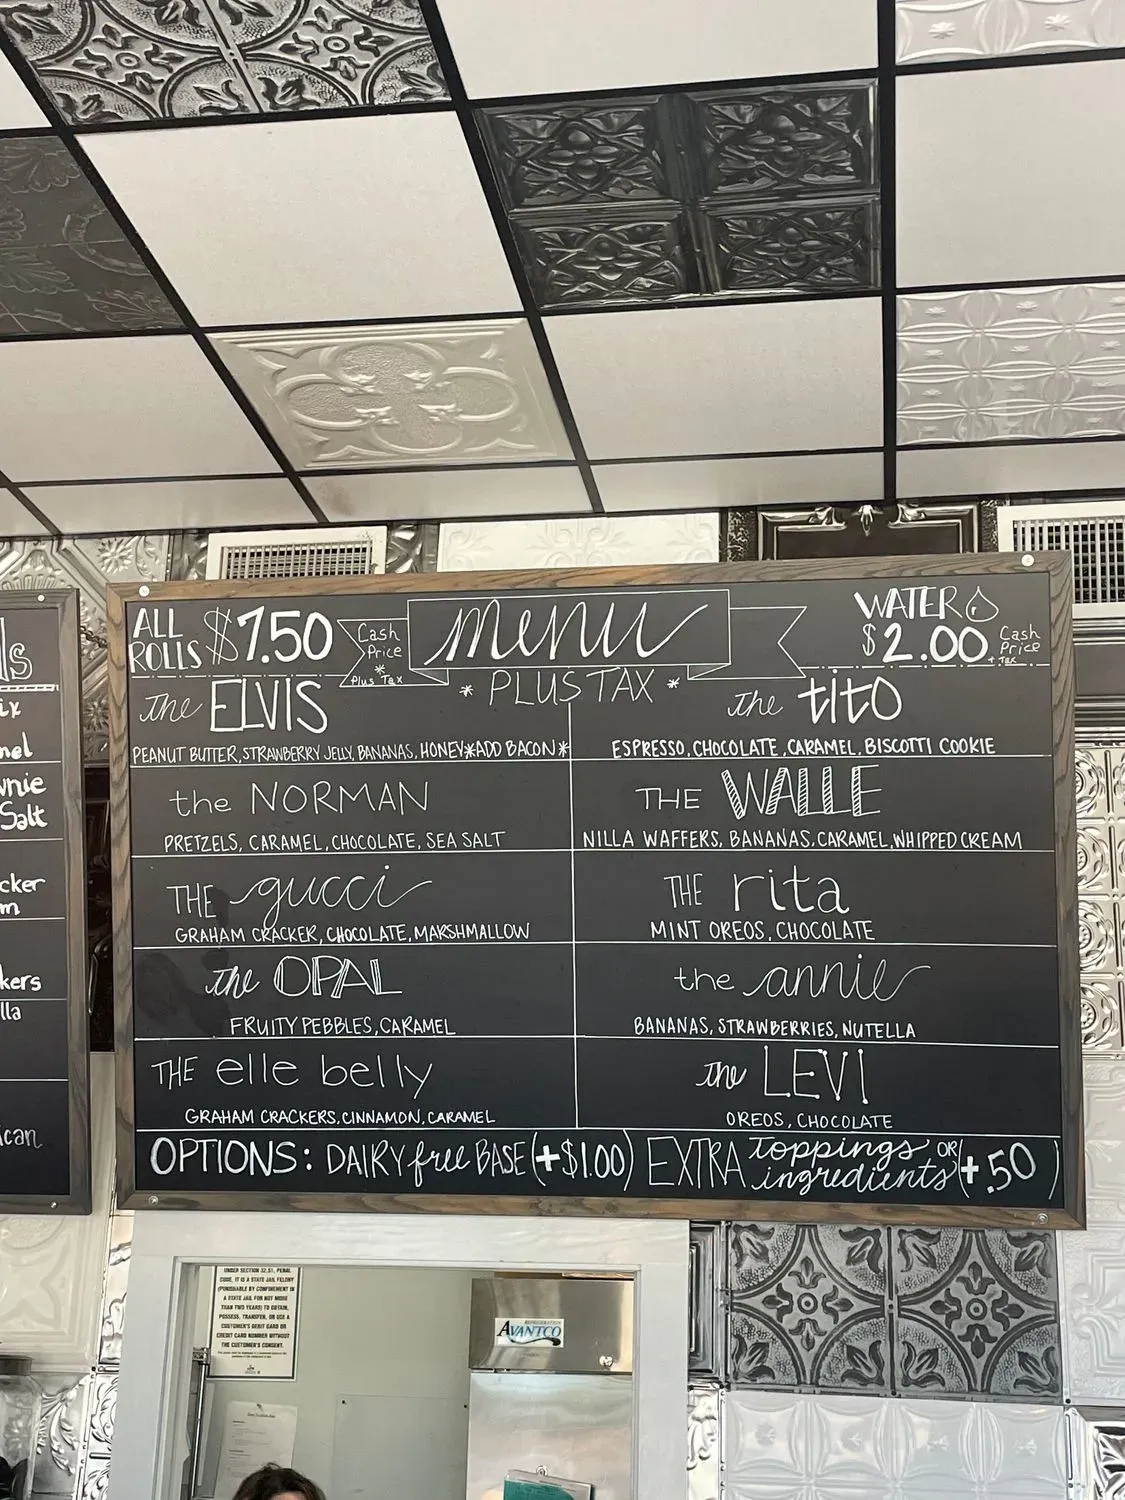 ls
ix
nel
wnie
Salt
cker
m
kers
lla
ican
ALL
ROLLS $7.50
Cash
Price
*
Plus Tax
menu
* PLUS TAX *
WATER
$2.00 Cash
Price
+ Tax
the ELVIS
PEANUT BUTTER, STRAWBERRY JELLY, BANANAS, HONEY *ADD BACON*
the NORMAN
PRETZELS, CARAMEL, CHOCOLATE, SEA SALT
THE gucci
GRAHAM CRACKER, CHOCOLATE, MARSHMALLOW
the OPAL
FRUITY PEBBLES, CARAMEL
THE elle belly
GRAHAM CRACKERS, CINNAMON, CARAMEL
the tito
ESPRESSO, CHOCOLATE, CARAMEL, BISCOTTI COOKIE
THE WALLE
NILLA WAFFERS, BANANAS, CARAMEL, WHIPPED CREAM
THE rita
MINT OREOS, CHOCOLATE
the annie
BANANAS, STRAWBERRIES, NUTELLA
the LEVI
OREOS, CHOCOLATE
OPTIONS: DAIRY free BASE (+$1.00) EXTRA toppings OR
ingredients (+.50)
UNDER SECTION 32.51, PENAL
CODE, IT IS A STATE JAIL FELONY
(PUNISHABLE BY CONFINEMENT IN
A STATE JAIL FOR NOT MORE
THAN TWO YEARS) TO OBTAIN,
POSSESS, TRANSFER, OR USE A
CUSTOMER'S DEBIT CARD OR
CREDIT CARD NUMBER WITHOUT
THE CUSTOMER'S CONSENT.
REFRIGERATION
AVANTCO